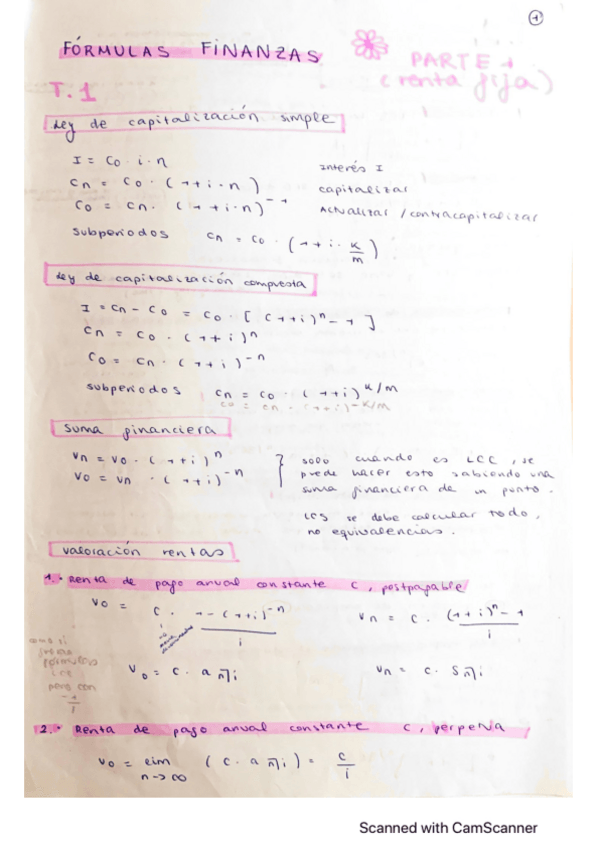 1
FÓRMULAS FINANZAS
PARTE 1
(renta fija)
T.1
Ley de capitalización simple
I = C0 · i · n
Interés I
Cn = C0 · (1+i·n)
capitalizar
C0 = Cn · (1+i·n)^-1
Actualizar / contracapitalizar
subperiodos Cn = C0 · (1+i· k/m)
Ley de capitalización compuesta
I = Cn - C0 = C0 · [(1+i)^n - 1]
Cn = C0 · (1+i)^n
C0 = Cn · (1+i)^-n
subperiodos Cn = C0 · (1+i)^k/m
C0 = Cn · (1+i)^-k/m
suma financiera
Vn = V0 · (1+i)^n
V0 = Vn · (1+i)^-n
solo cuando es LCC, se
puede hacer esto sabiendo una
suma financiera de un punto.
LCS se debe calcular todo,
no equivalencias.
valoración rentas
1.- Renta de pago anual constante C, postpagable
V0 = C · 1-(1+i)^-n / i
Vn = C · (1+i)^n - 1 / i
como si
fórmulas
LCC
pero con
-1
i
V0 = C · a n¬i
Vn = C · S n¬i
2.- Renta de pago anual constante C, perpetua
V0 = lim n->∞ (C · a n¬i) = C/i
Scanned with CamScanner